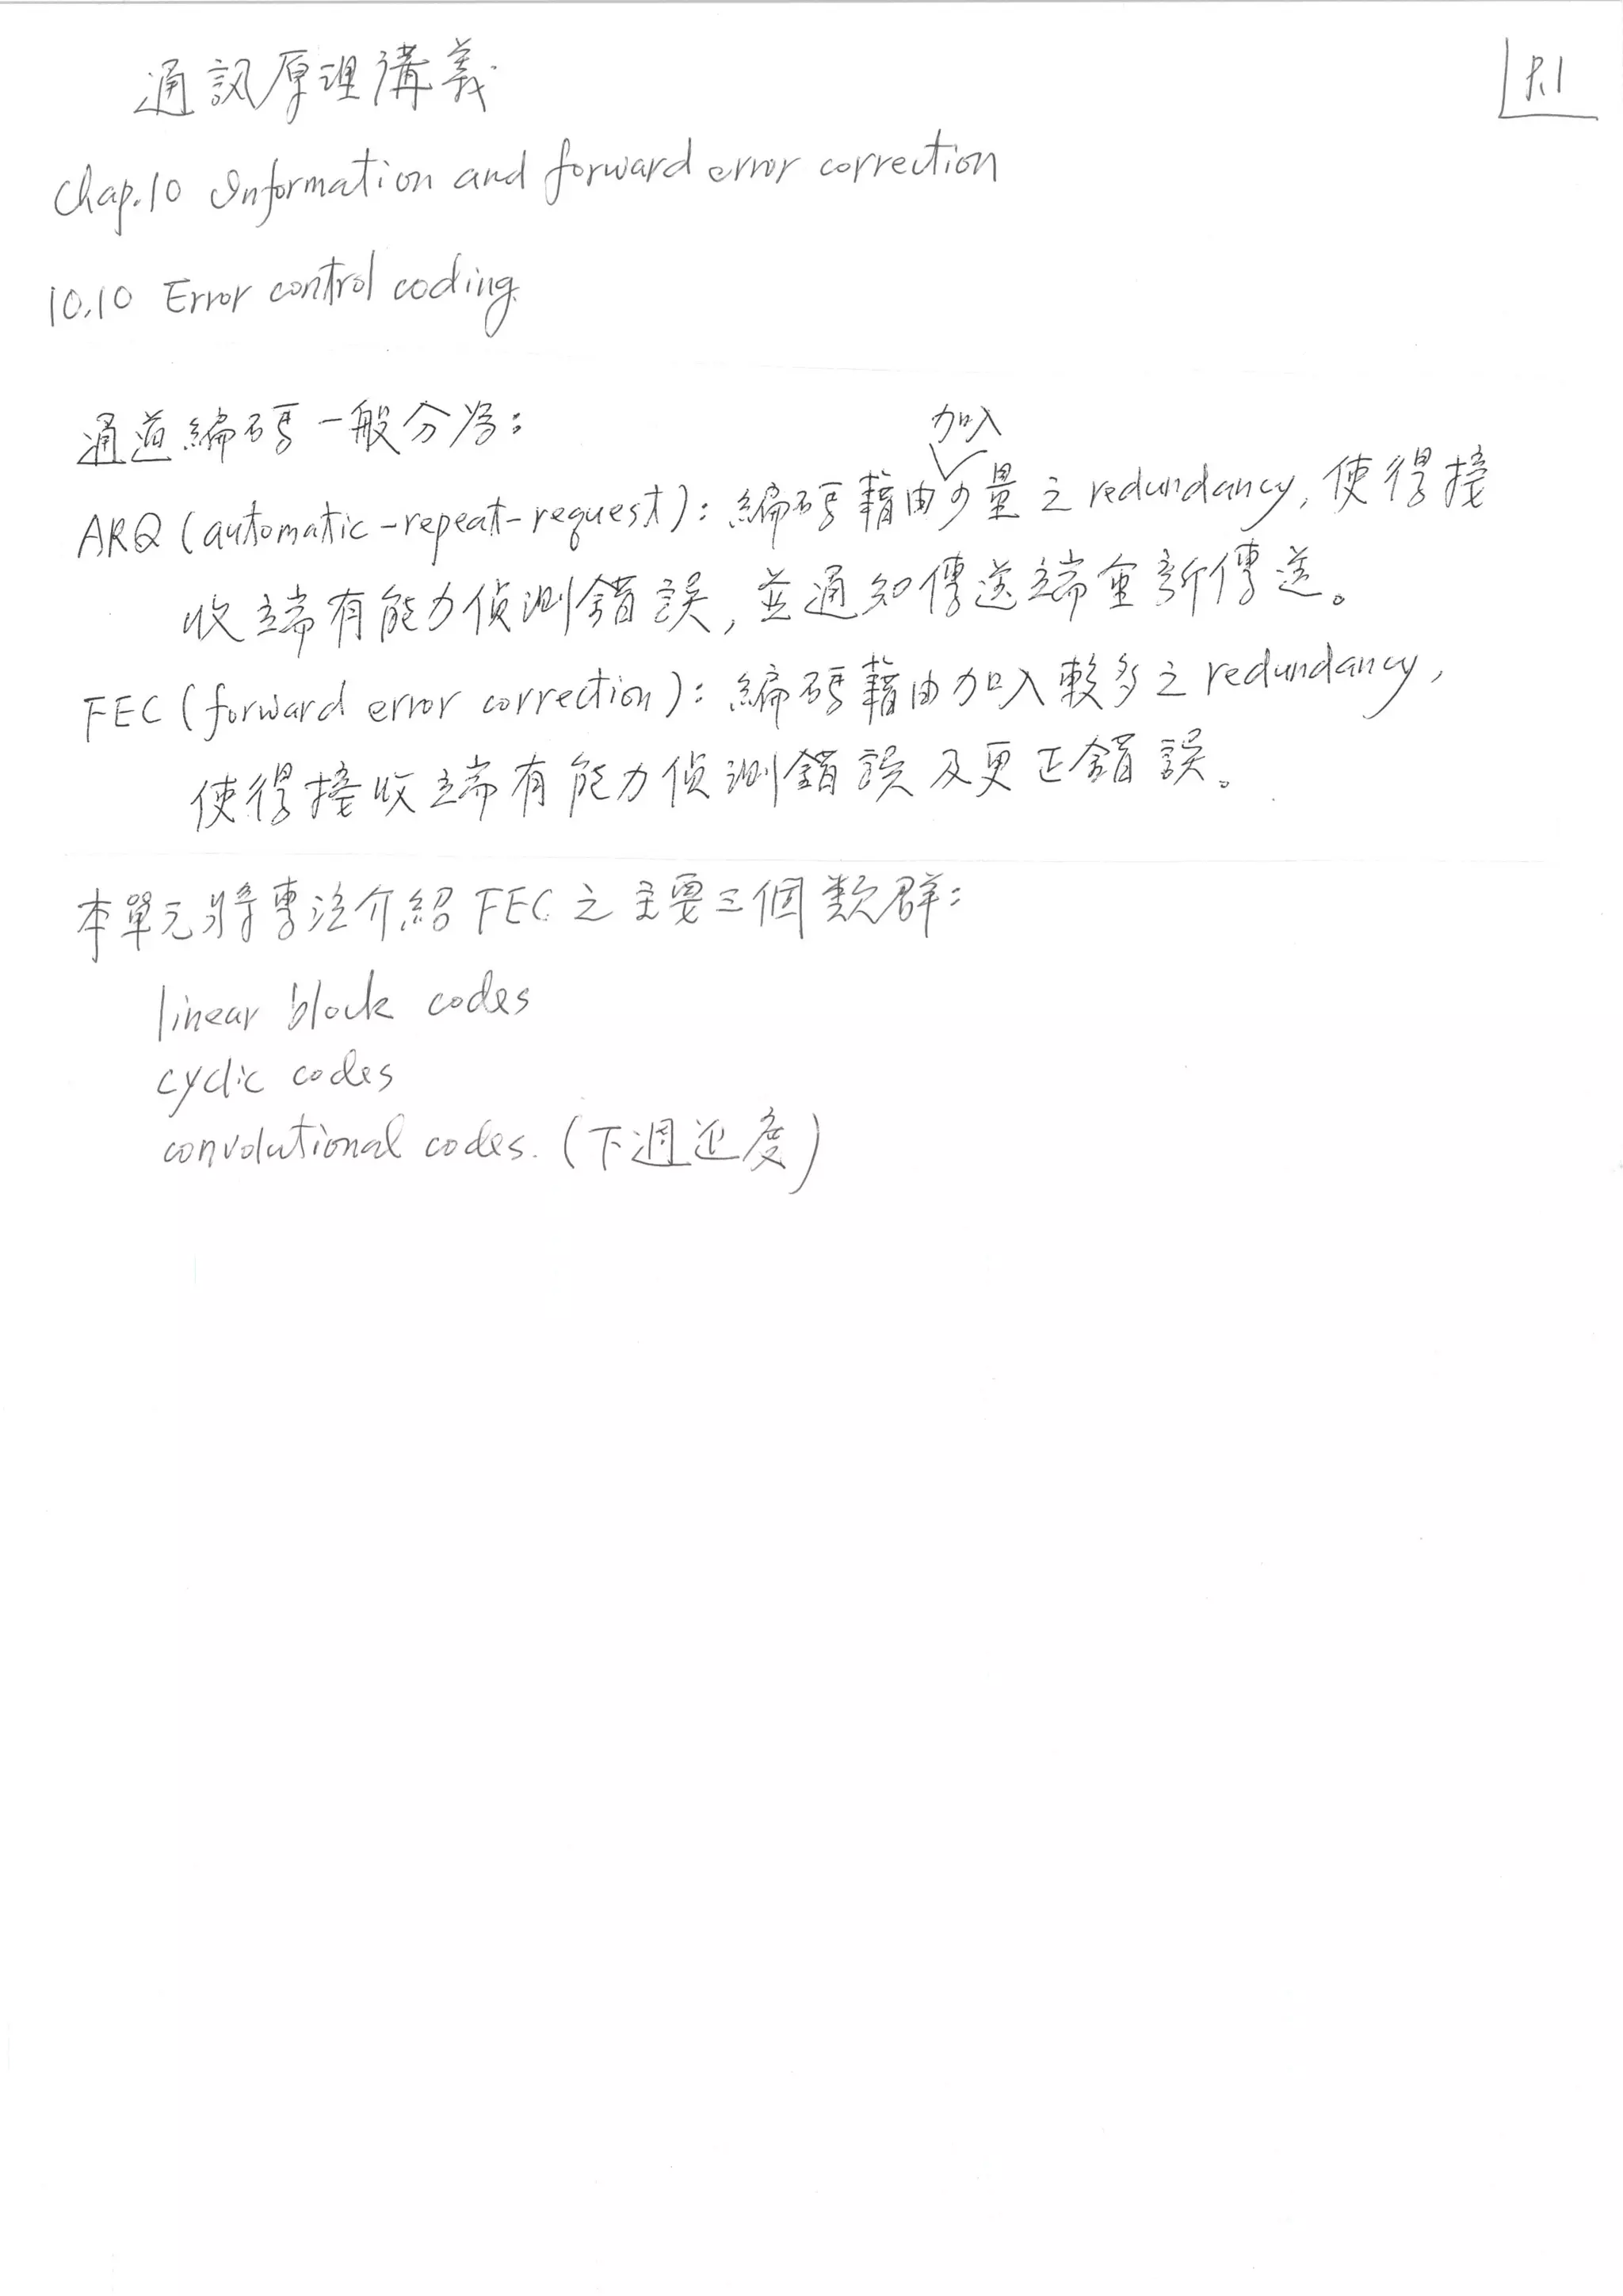 通訊原理講義
P.1
Chap.10 Information and forward error correction
10.10 Error control coding.
通道編碼一般分為:
ARQ (automatic-repeat-request): 編碼藉由加入少量之redundancy, 使得接
收端有能力偵測錯誤, 並通知傳送端重新傳送。
FEC (forward error correction): 編碼藉由加入較多之redundancy,
使得接收端有能力偵測錯誤及更正錯誤。
本單元將專注介紹FEC之主要三個類群:
linear block codes
cyclic codes
convolutional codes. (下週進度)